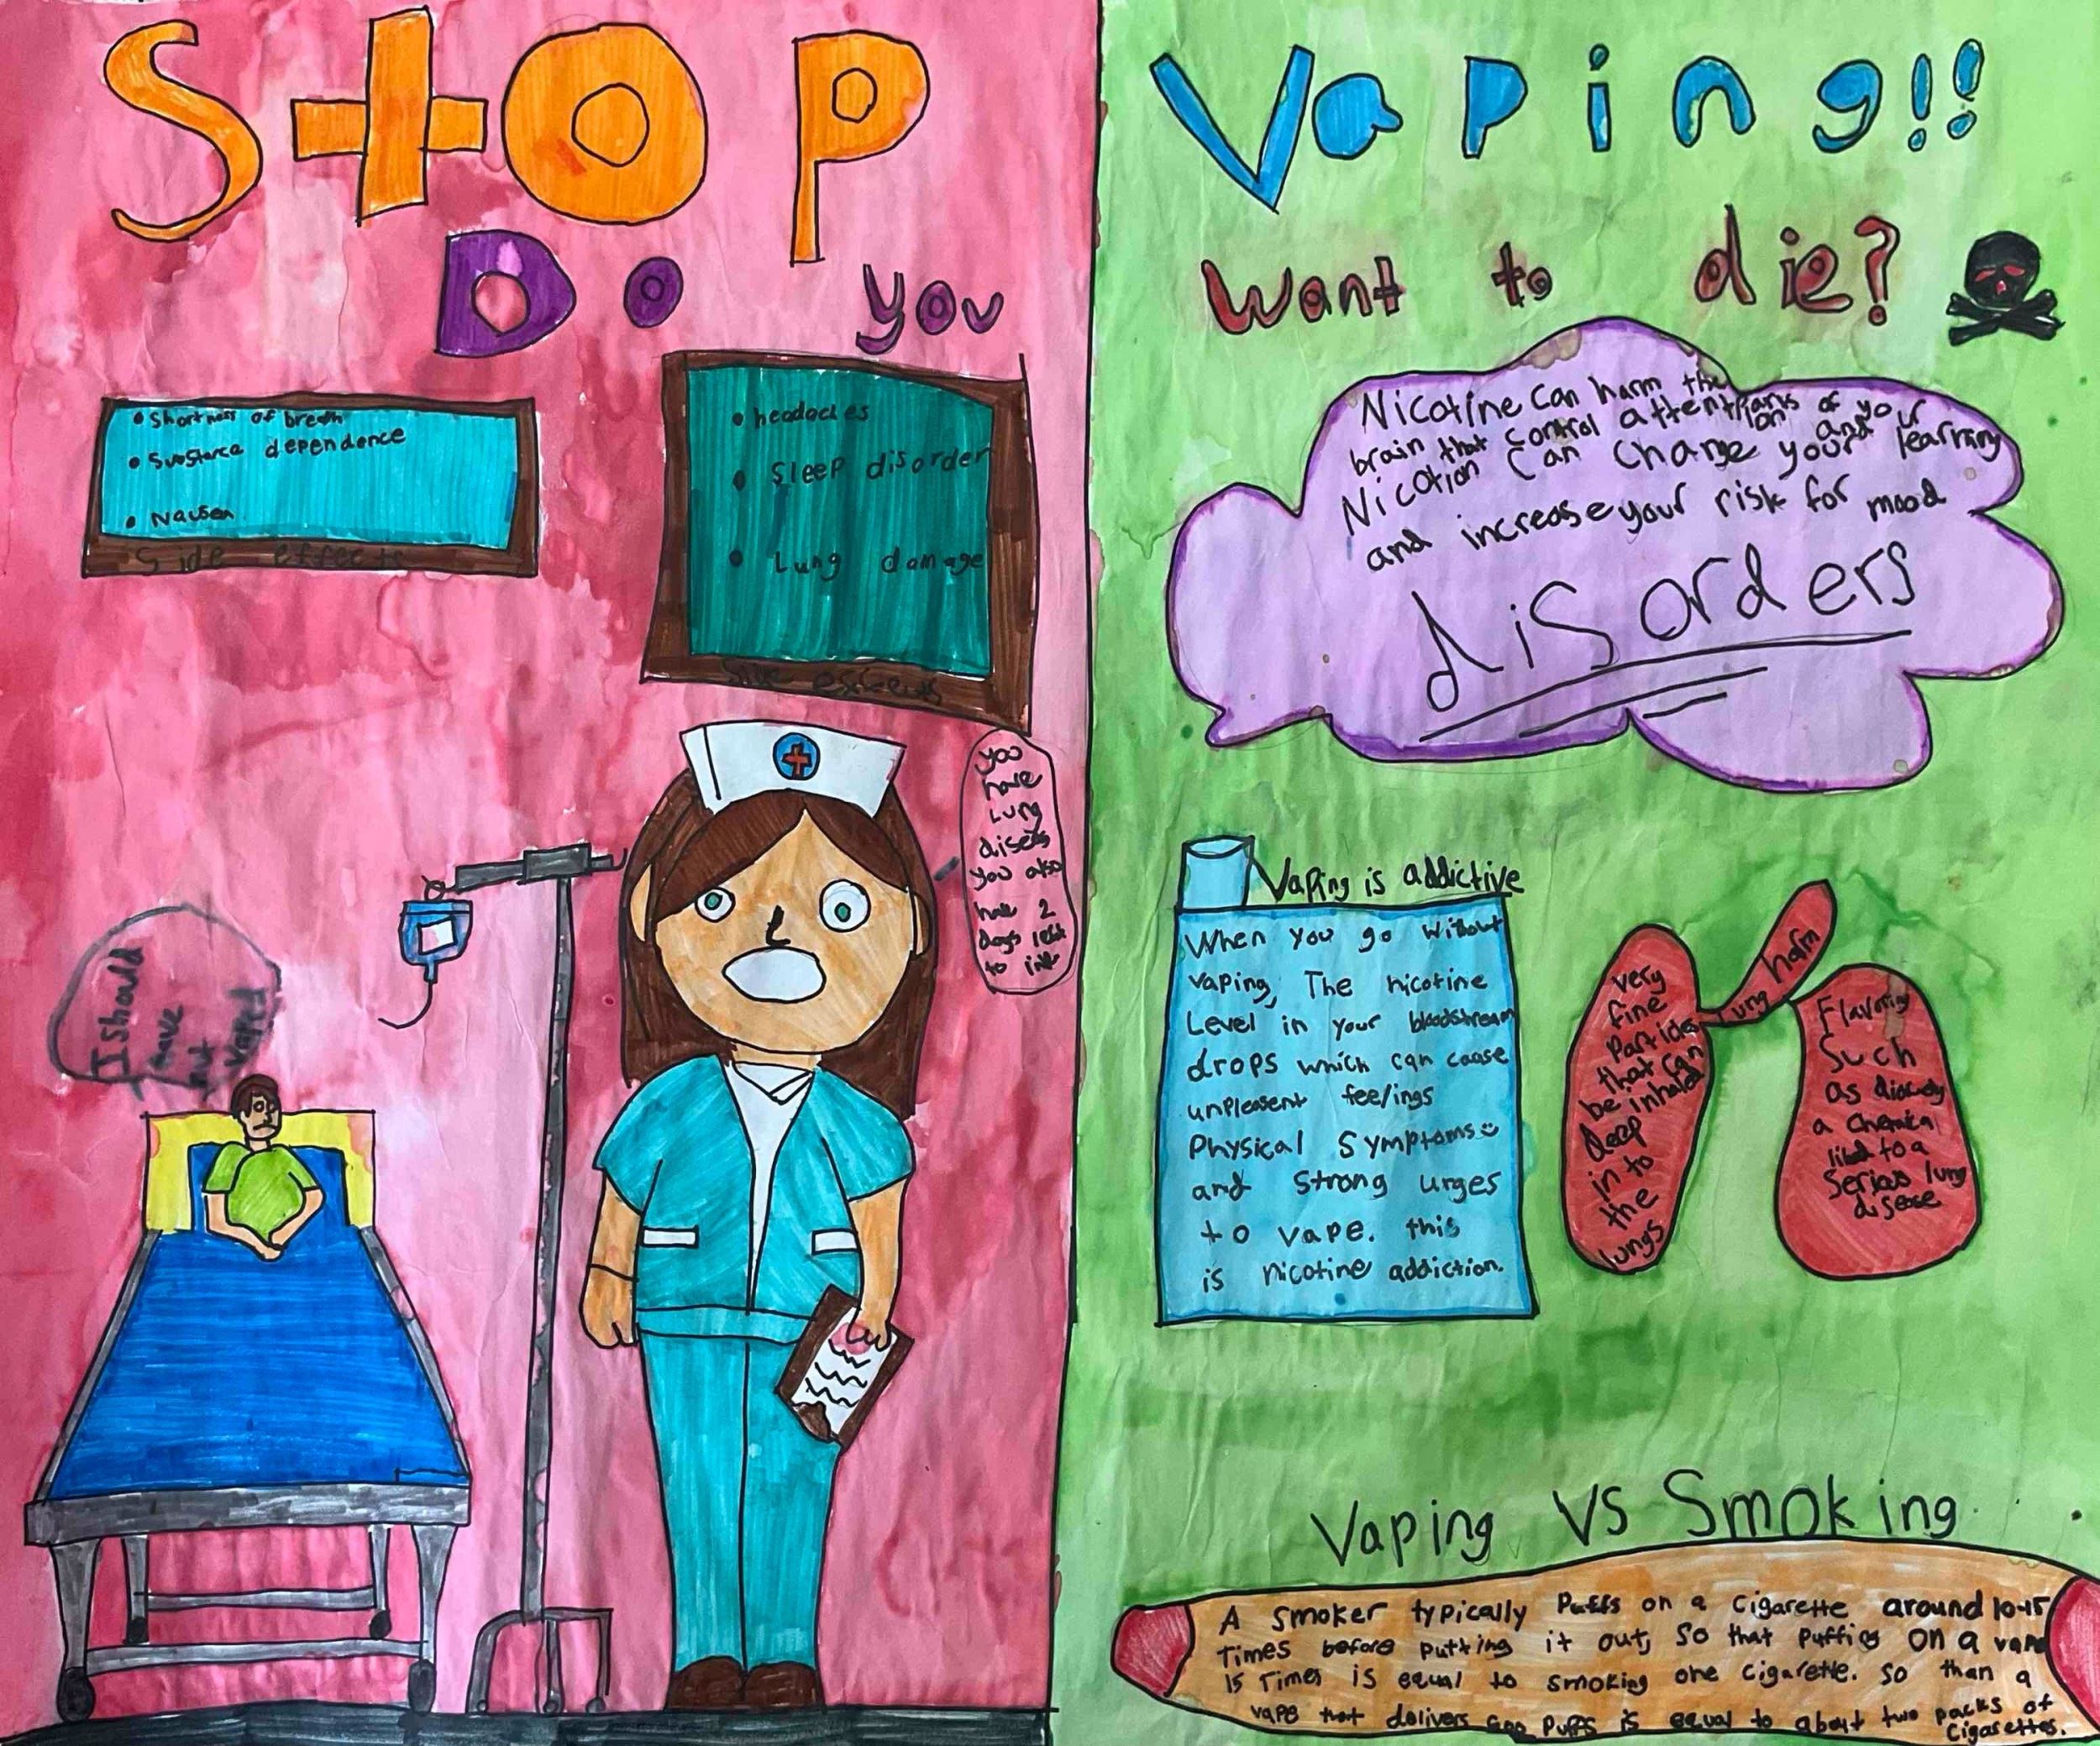 Stop Vaping!!
Do you want to die?
• Shortness of breath
• Substance dependence
• Nausea
Side effects
• headaches
• Sleep disorder
• Lung damage
Side
Nicotine Can harm the
Parts of your
brain that control attention and
learning
Nicotion Can Change your
and increase your risk for mood
disorders
you
have
Lung
diseas
you also
have 2
days left
to
I should
have
not
vaped
Vaping is addictive
When you go without
vaping, The nicotine
Level in your bloodstream
drops which can cause
unplesent feelings
Physical Symptoms
and strong urges
to vape. this
is nicotine addiction.
lung harm
very
fine
Particles
that can
be inhaled
deep
in to
the
lungs
Flavoring
Such
as
a Chemical
to a
Serious lung
disease
Vaping VS Smoking
A smoker typically Puffs on a cigarette around 10-15
Times before putting it out, so that puffing on a vape
15 Times is equal to smoking one cigarette. so than a
vape that delivers Puffs is equal to about two packs of
Cigarettes.